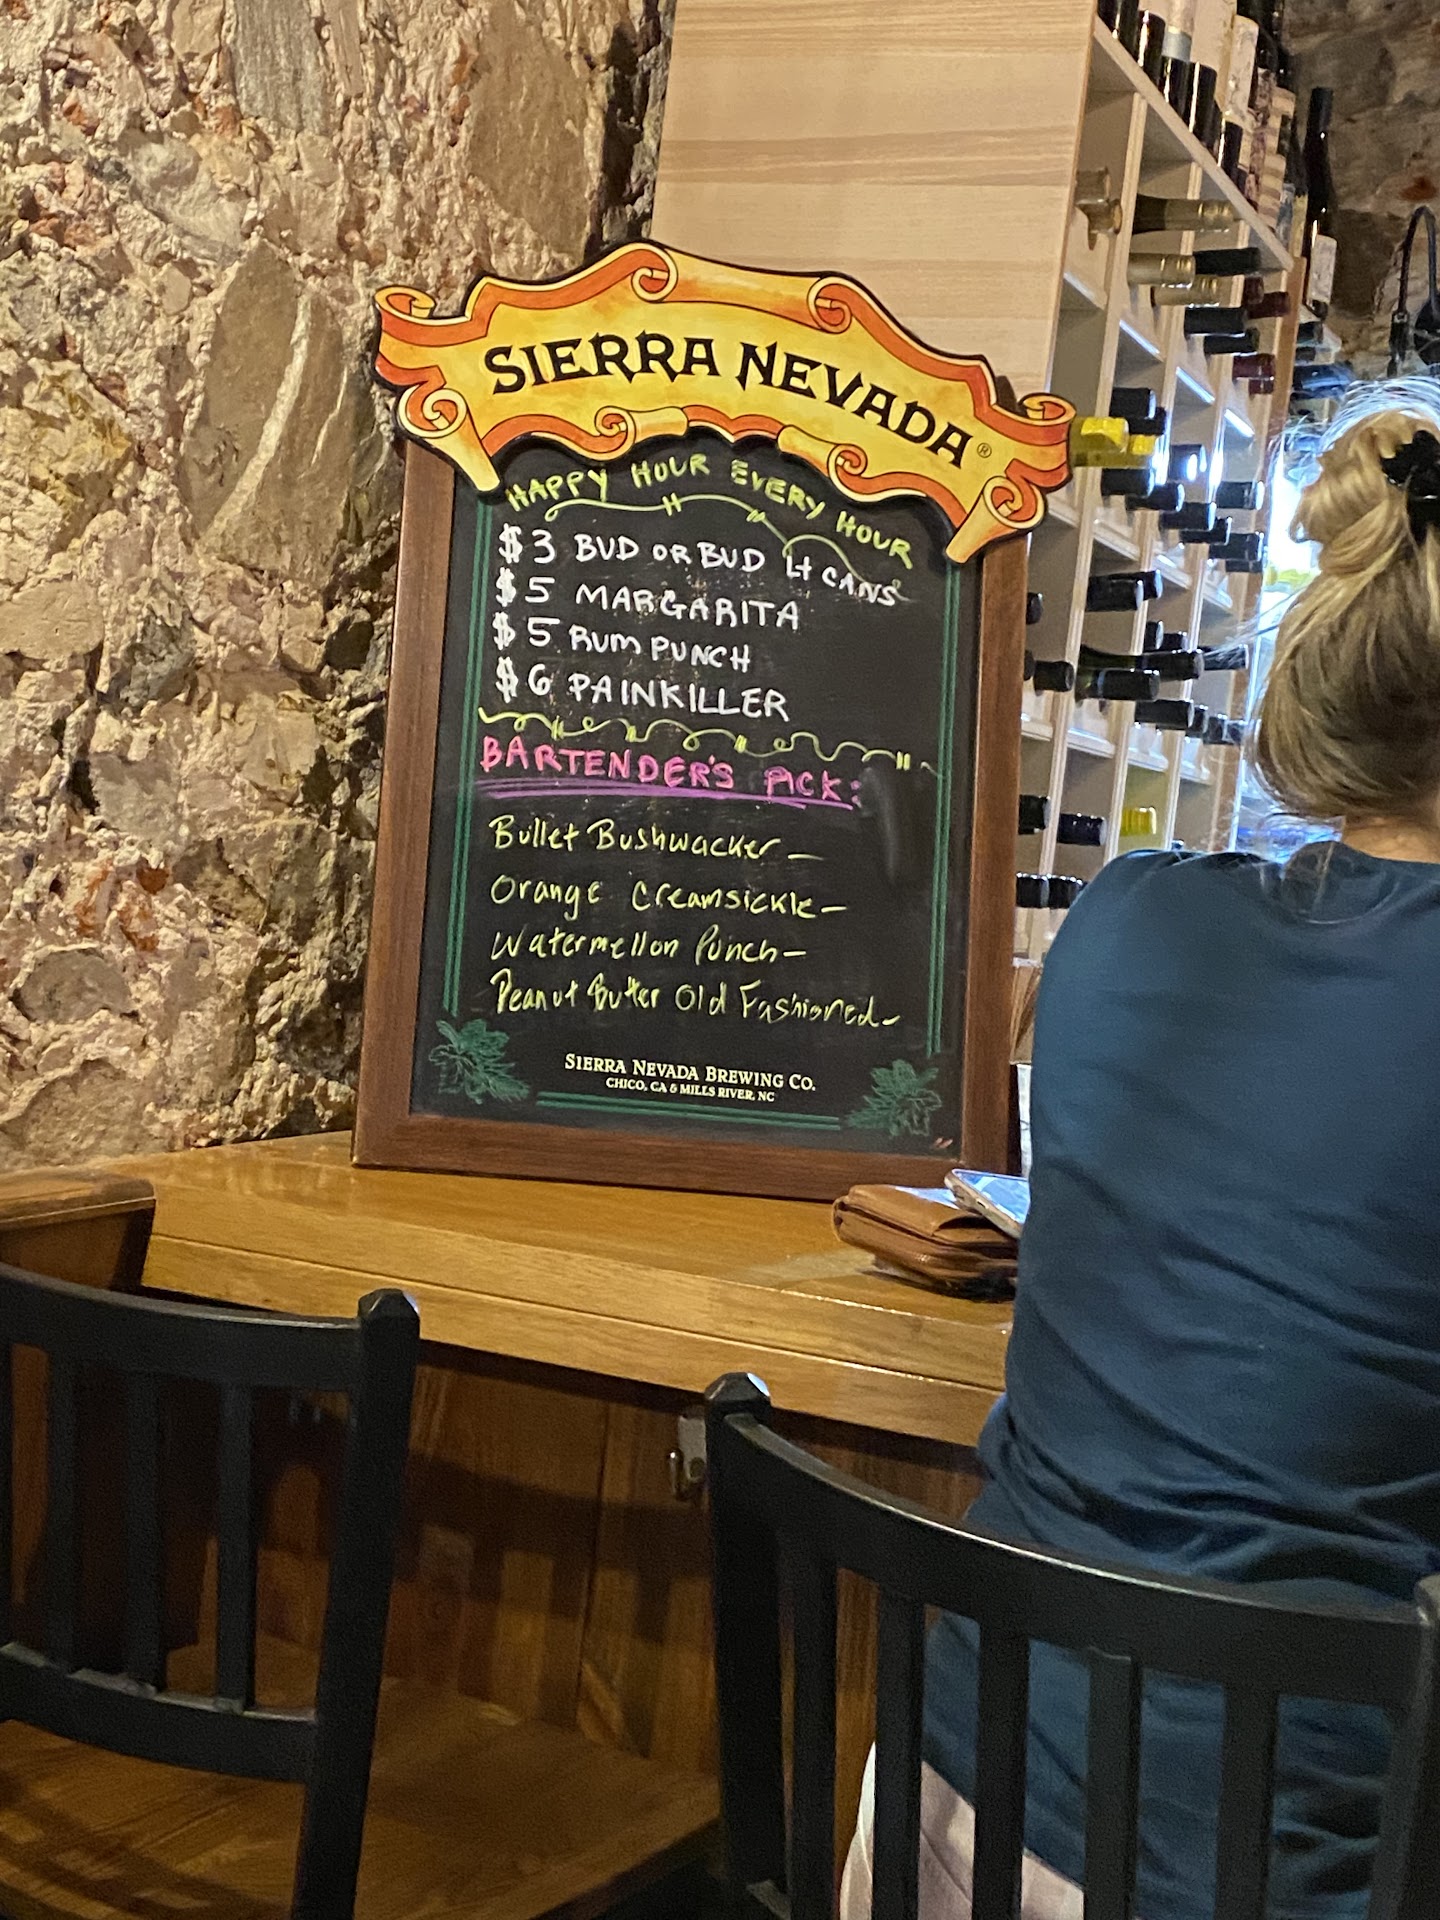 SIERRA NEVADA®
HAPPY HOUR EVERY HOUR
$3 BUD OR BUD Lt CANS
$5 MARGARITA
$5 RUM PUNCH
$6 PAINKILLER
BARTENDER'S PICK:
Bullet Bushwacker –
Orange Creamsickle –
Watermellon Punch –
Peanut Butter Old Fashioned –
SIERRA NEVADA BREWING CO.
CHICO, CA & MILLS RIVER, NC